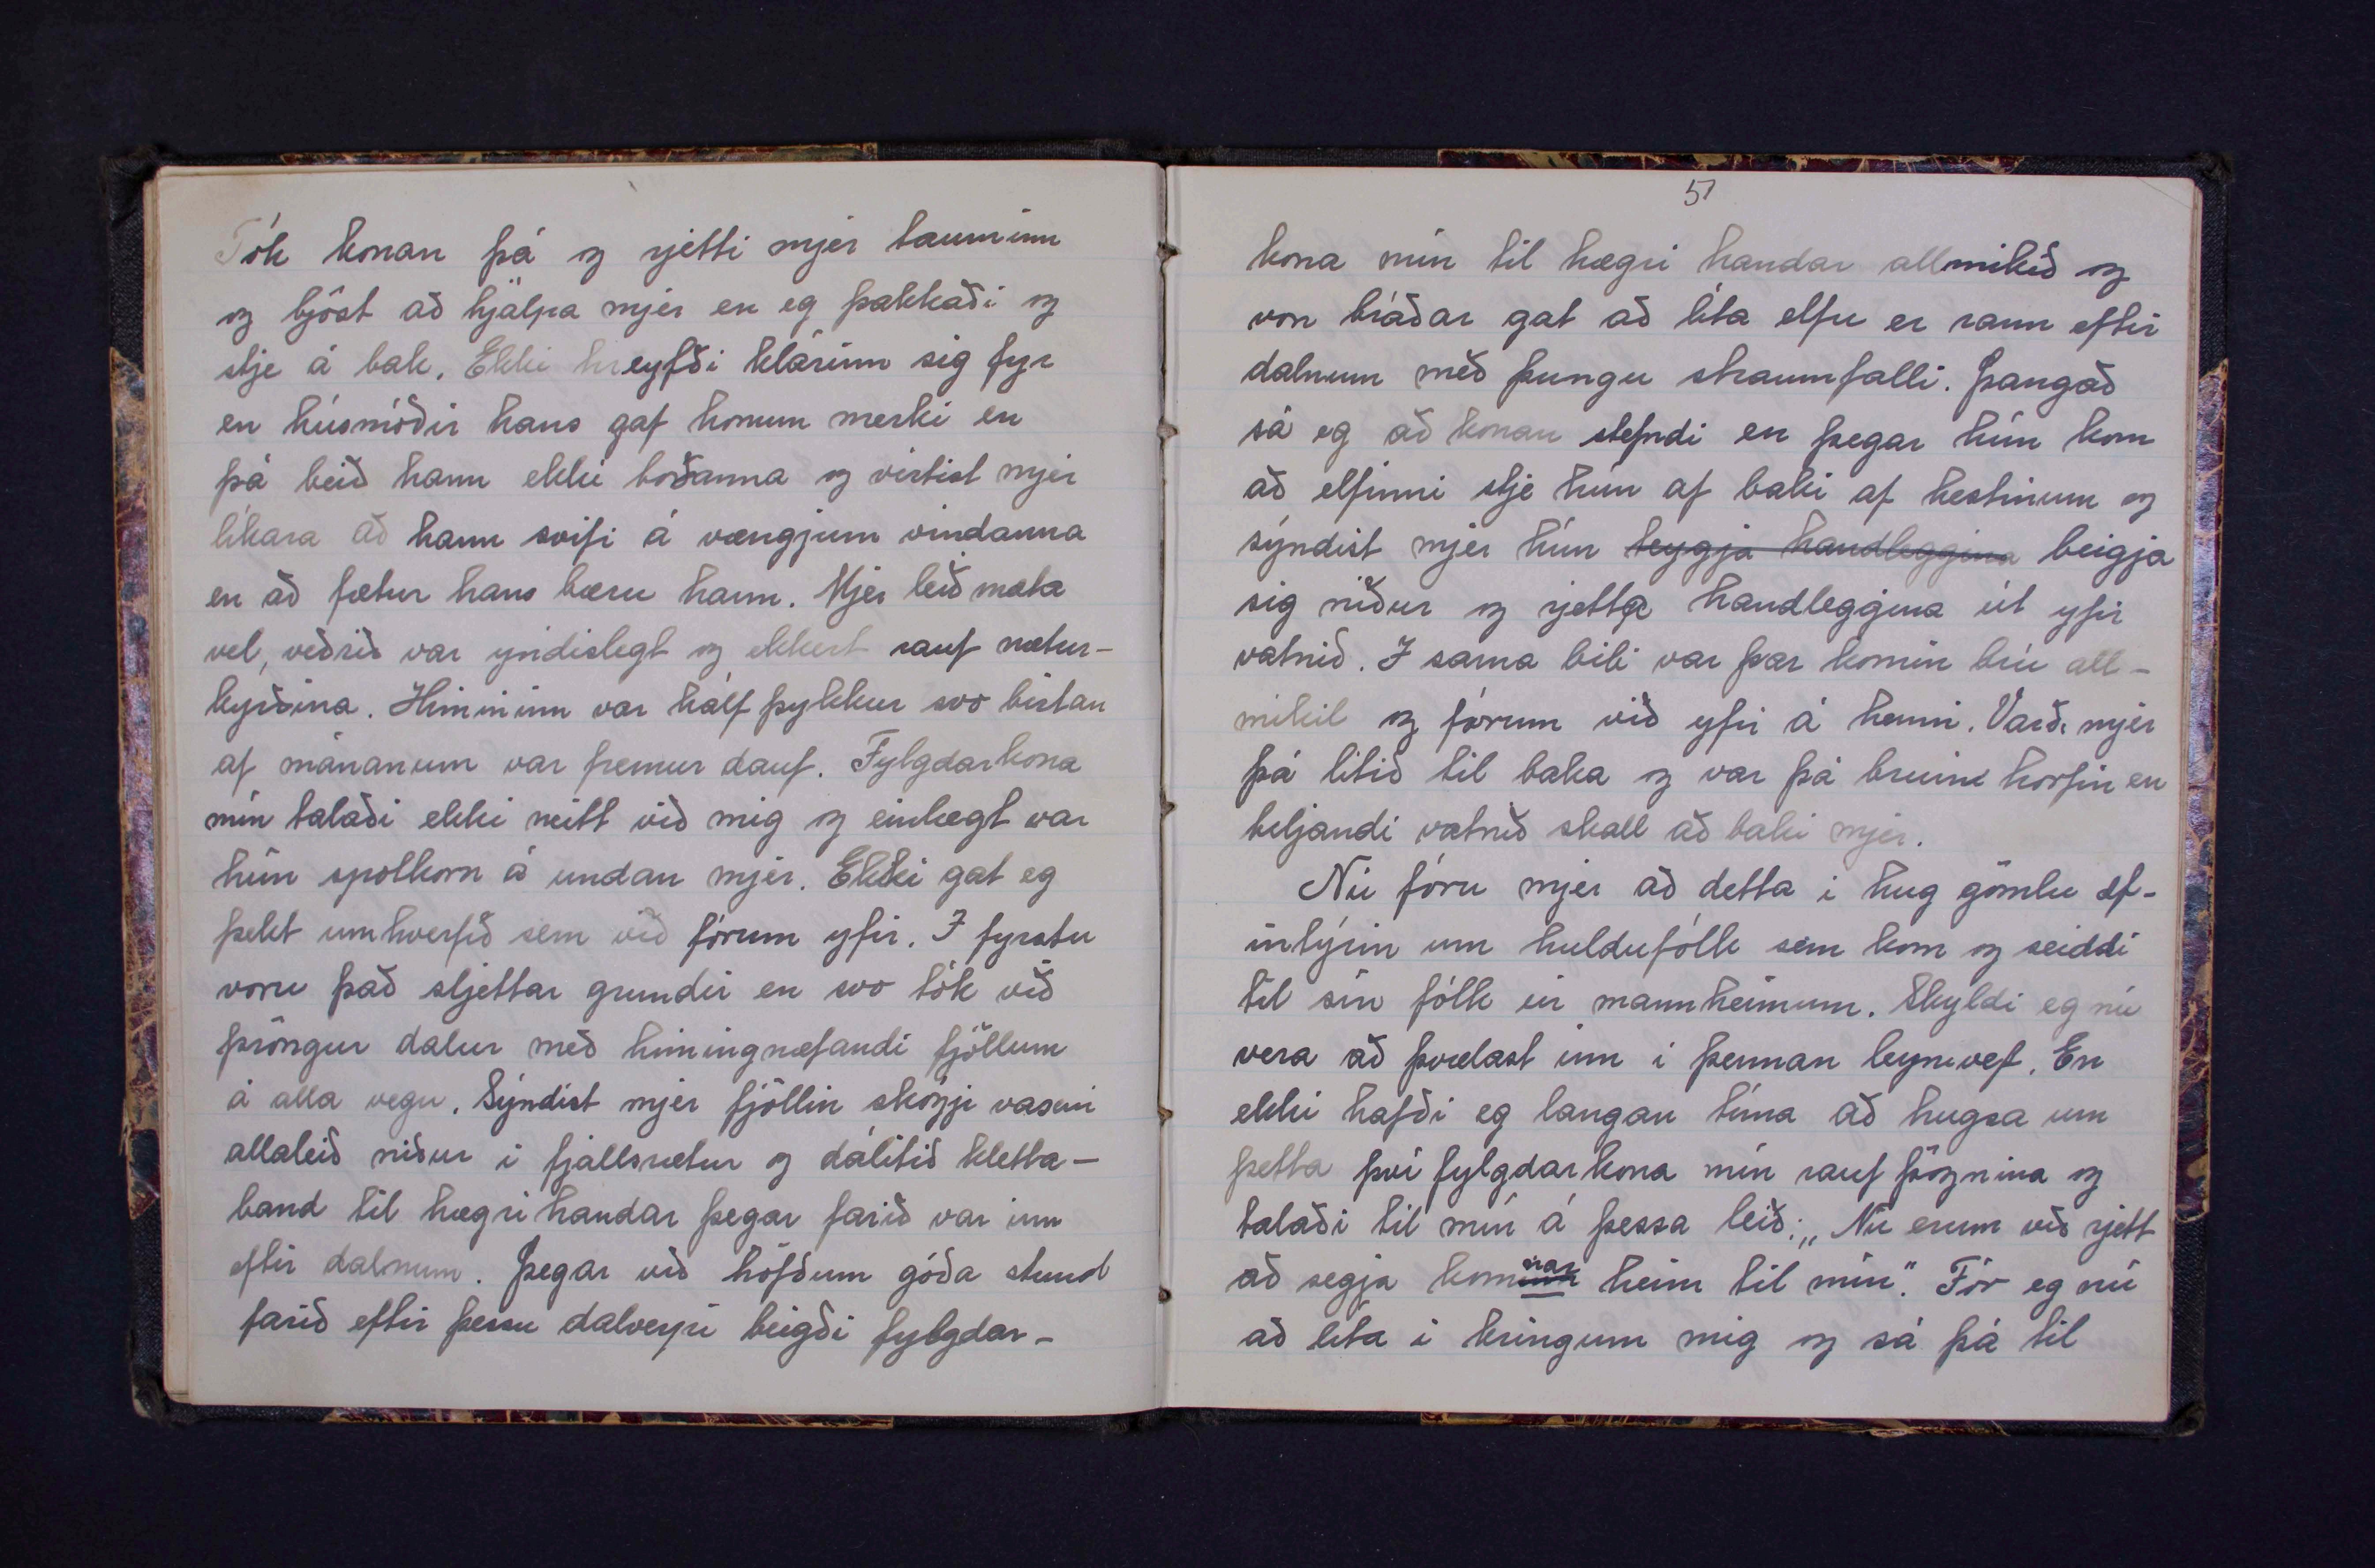 Tók konan þá og rjetti mjer tauminn
og bjóst að hjálpa mjer en eg þakkaði og
stje á bak. Ekki hreyfði klárinn sig fyr
en húsmóðir hans gaf honum merki en
þá beið hann ekki boðanna og virtist mjer
líkara að hann svifi á vængjum vindanna
en að fætur hans bæru hann. Mjer leið mæta
vel, veðrið var yndislegt og ekkert rauf nætur-
kyrðina. Himininn var hálf þykkur svo birtan
af mánanum var fremur dauf. Fylgdarkona
mín talaði ekki neitt við mig og einlægt var
hún spolkorn á undan mjer. Ekki gat eg
þekt umhverfið sem við fórum yfir. I fyrstu
voru það sljettar grundir en svo tók við
þröngur dalur með himingnæfandi fjöllum
á alla vegu. Sýndist mjer fjöllin skógi vaxin
allaleið niður í fjallsrætur og dálitið kletta-
band til hægri handar þegar farið var inn
eftir dalnum. Þegar við höfðum góða stund
farið eftir þessu dalverpi beigði fylgdar-
51
kona mín til hægri handar allmikið og
von bráðar gat að líta elfu er rann eftir
dalnum með þungu straumfalli. Þangað
sá eg að konan stefndi en þegar hún kom
að elfinni stje hún af baki af hestinum og
sýndist mjer hún teygja handleggina beigja
sig niður og rjetta handleggina út yfir
vatnið. I sama bili var þar komin brú all-
mikil og fórum við yfir á henni. Varð mjer
þá litið til baka og var þá bruin horfin en
beljandi vatnið skall að baki mjer.
Nú fóru mjer að detta í hug gömlu æf-
intýrin um huldufólk sem kom og seiddi
til sín fólk úr mannheimum. Skyldi eg nú
vera að þvælast inn í þennan leynivef. En
ekki hafði eg langan tíma að hugsa um
þetta því fylgdarkona mín rauf þögnina og
talaði til mín á þessa leið: „Nú erum við rjett
að segja komnar heim til mín". Fór eg nú
að líta í kringum mig og sá þá til